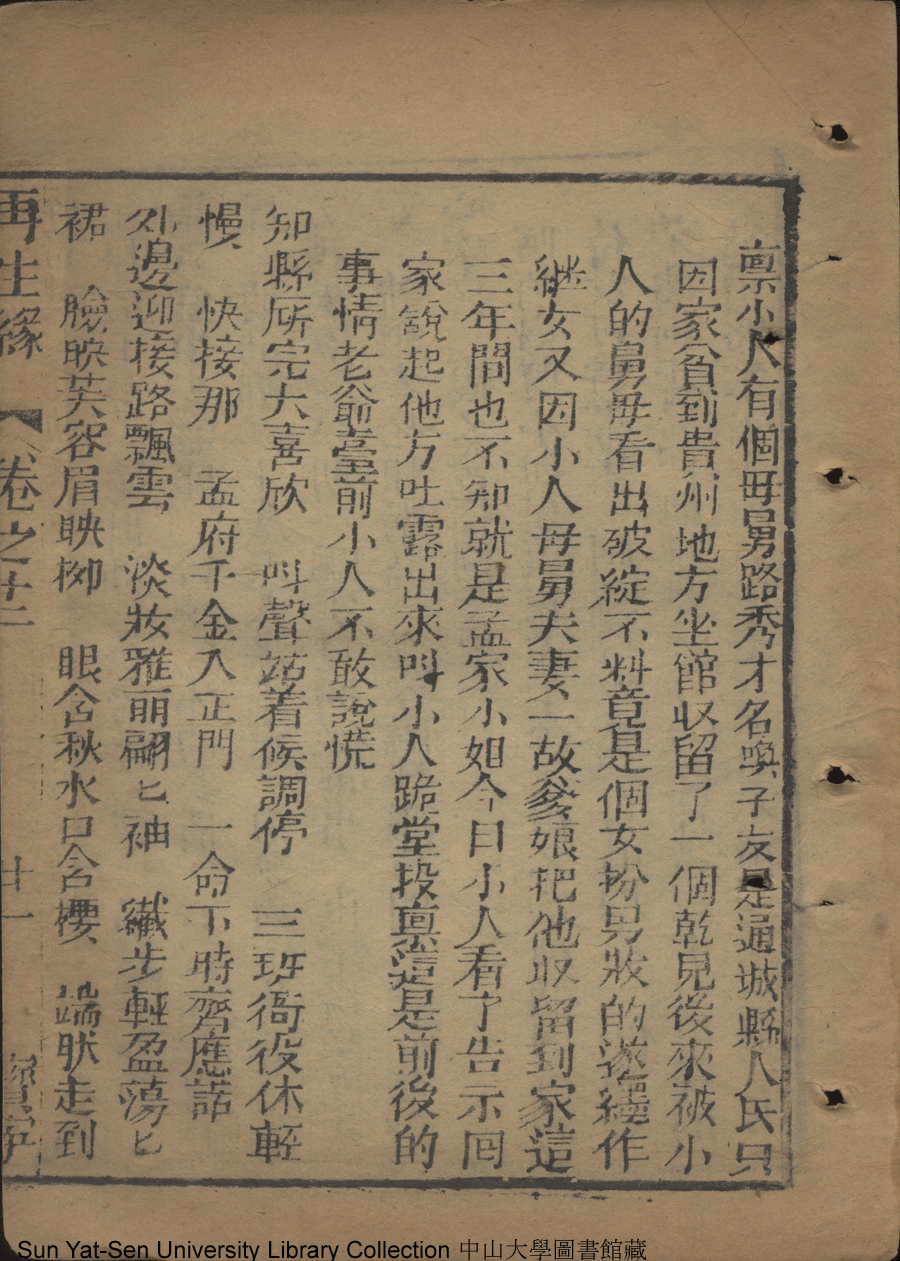 禀小人有個母舅路秀才名喚子友是通城縣人氏只
因家貧到貴州地方坐館収留了一個乾兒後來被小
人的舅母看出破綻不料竟是個女扮男妝的遂繼作
継女又因小人母舅夫妻一故爹娘把他収留到家這
三年間也不知就是孟家小姐今日小人看了告示囘
家說起他方吐露出來叫小人跪堂投禀這是前後的
事情老爺臺前小人不敢說慌
知縣㕔完大喜欣 叫聲站着候調停 三班衙役休輕
慢 快接那 孟府千金入正門 一命下時齊應諾
外邊迎接路飄雲 淡妝雅丽翩匕袖 纎步輕盈蕩匕
裙 臉映芙容眉映柳 眼含秋水口含櫻 端肰走到
再生緣 卷之十二 廿一
Sun Yat-Sen University Library Collection 中山大學圖書館藏